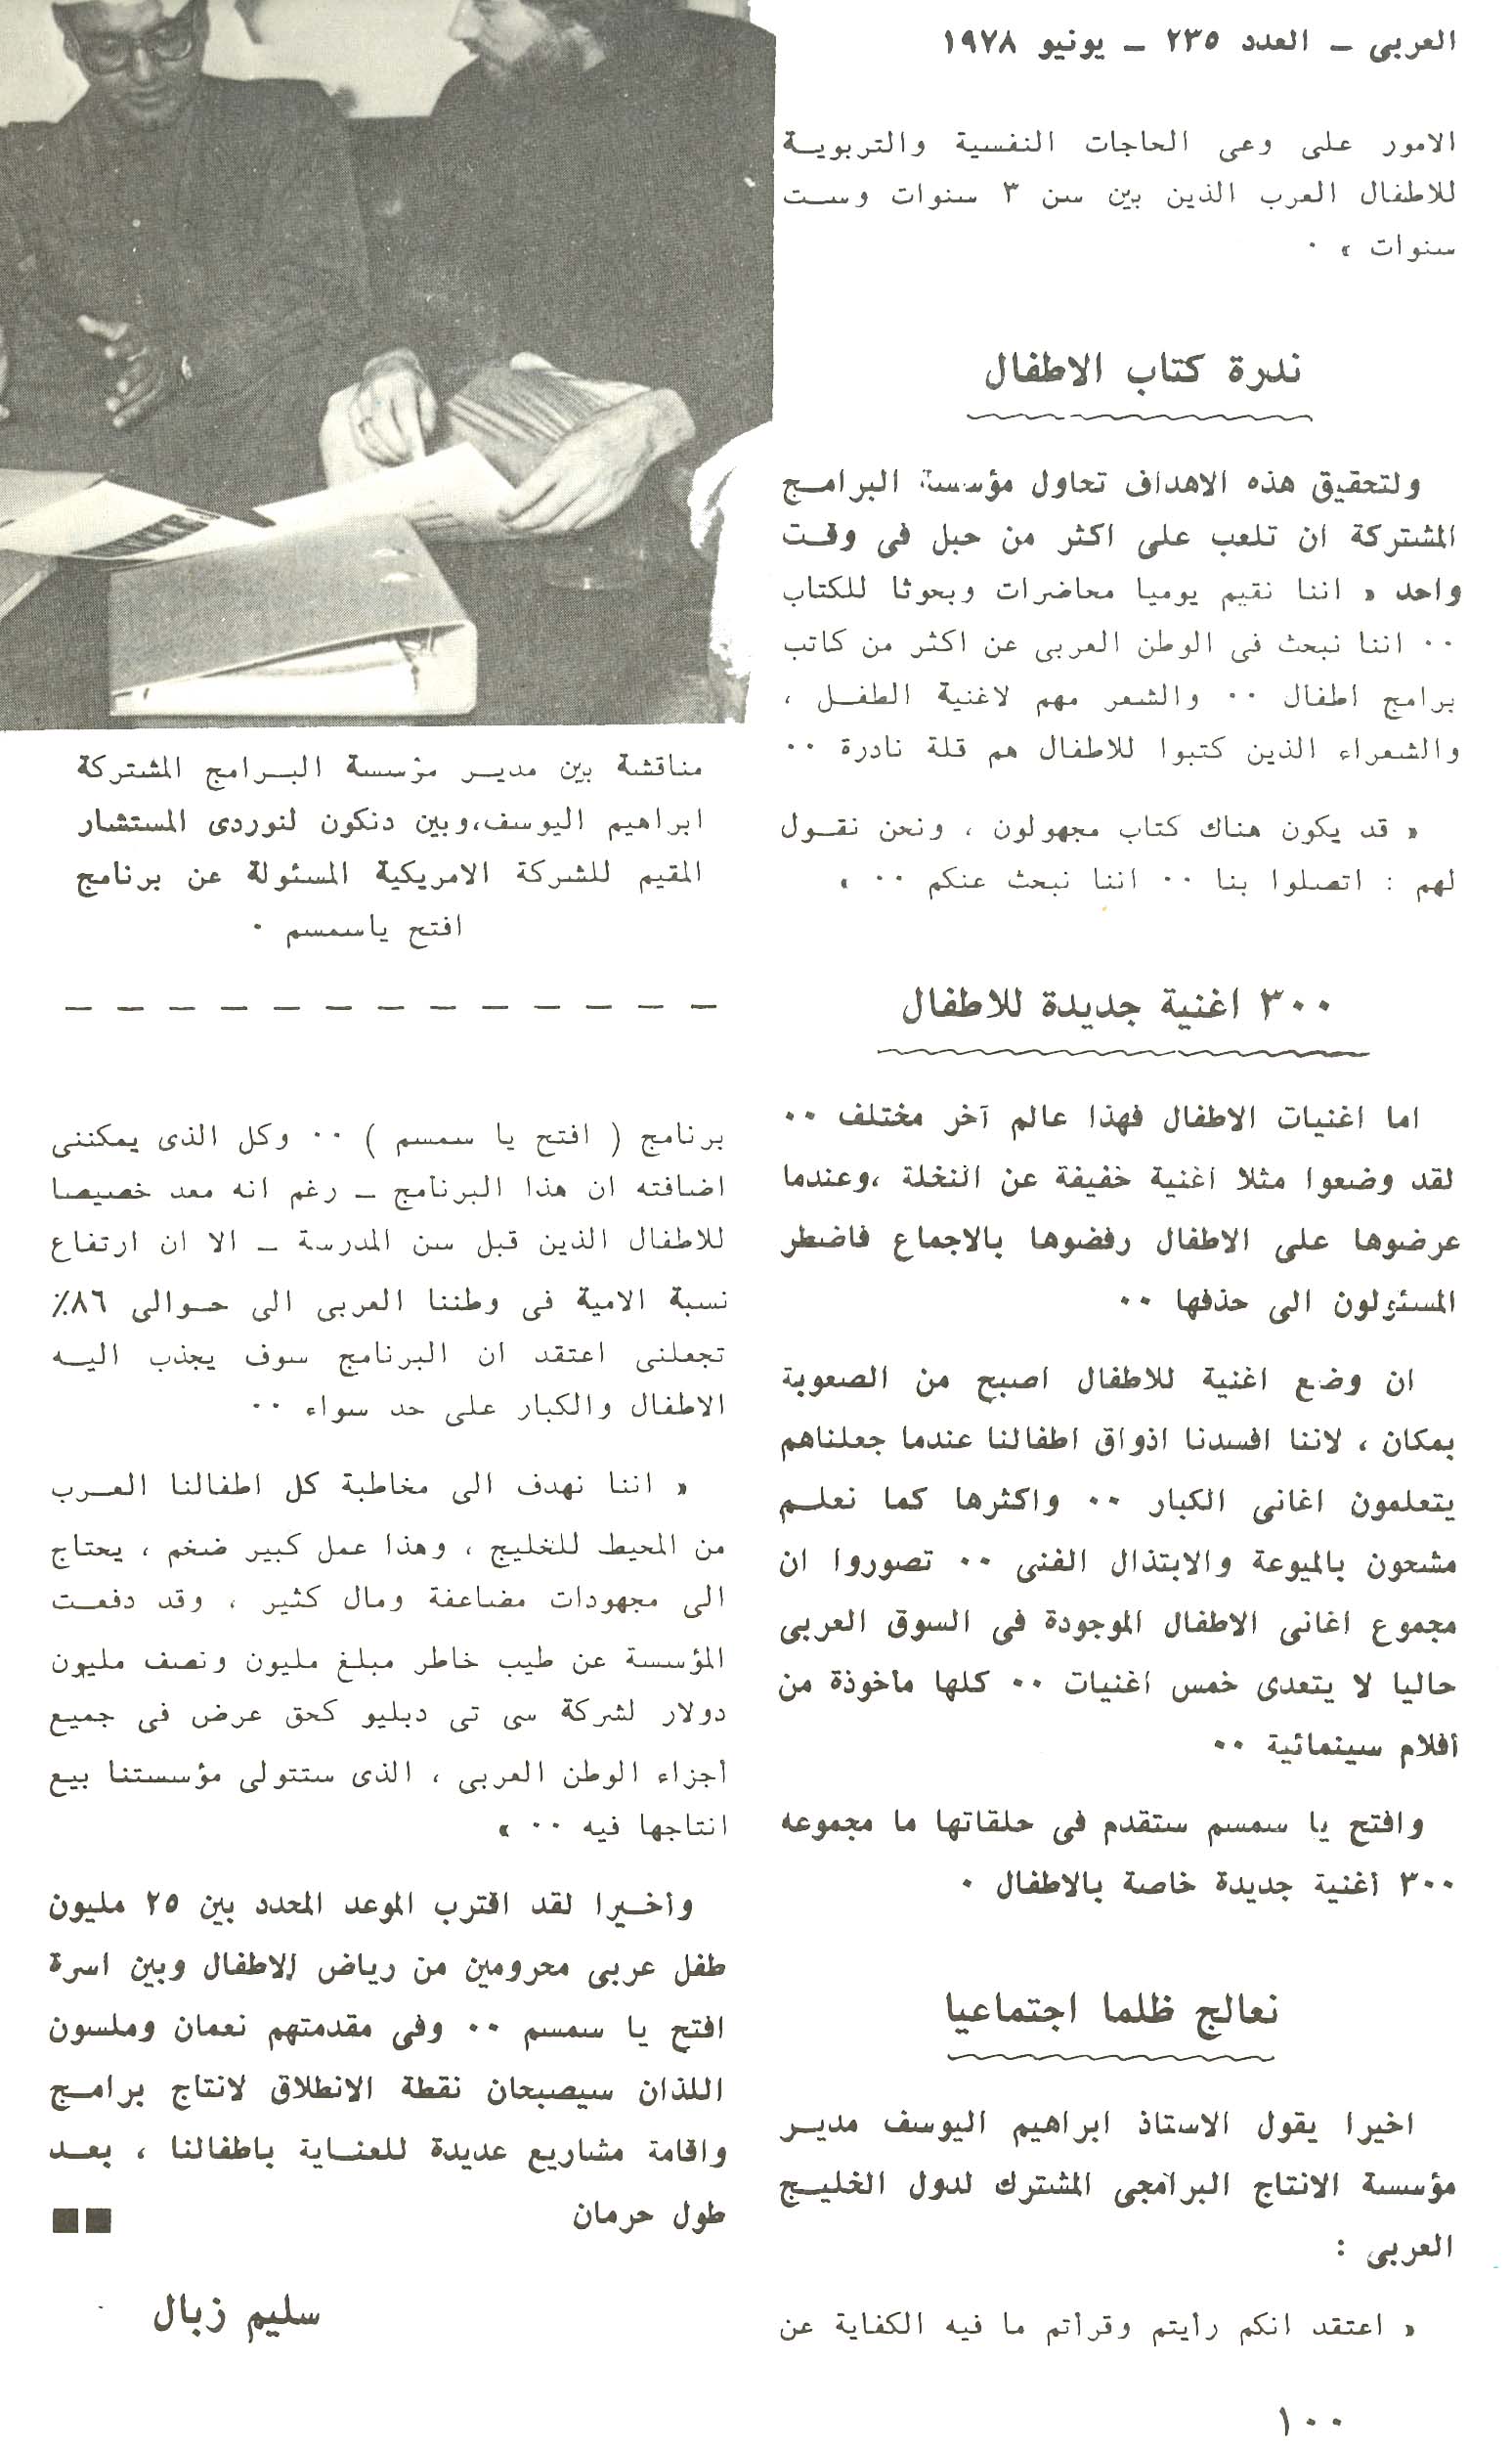 العربى ــ العدد ٢٣٥ ــ يونيو ١٩٧٨
الامور على وعى الحاجات النفسية والتربويــة
للاطفال العرب الذين بين سن ٣ سنوات وســت
سنوات » ٠
ندرة كتاب الاطفال
ولتحقيق هذه الاهداف تحاول مؤسسة البرامــج
المشتركة ان تلعب على اكثر من حبل فى وقــت
واحد « اننا نقيم يوميا محاضرات وبحوثا للكتاب
٠٠ اننا نبحث فى الوطن العربى عن اكثر من كاتب
برامج اطفال ٠٠ والشعر مهم لاغنية الطفــل ،
والشعراء الذين كتبوا للاطفال هم قلة نادرة ٠٠
« قد يكون هناك كتاب مجهولون ، ونحن نقــول
لهم : اتصلوا بنا ٠٠ اننا نبحث عنكم ٠٠ »
٣٠٠ اغنية جديدة للاطفال
اما اغنيات الاطفال فهذا عالم آخر مختلف ٠٠
لقد وضعوا مثلا اغنية خفيفة عن النخلة ،وعندما
عرضوها على الاطفال رفضوها بالاجماع فاضطر
المسئولون الى حذفها ٠٠
ان وضع اغنية للاطفال اصبح من الصعوبة
بمكان ، لاننا افسدنا اذواق اطفالنا عندما جعلناهم
يتعلمون اغانى الكبار ٠٠ واكثرها كما نعلــم
مشحون بالميوعة والابتذال الفنى ٠٠ تصوروا ان
مجموع اغانى الاطفال الموجودة فى السوق العربى
حاليا لا يتعدى خمس اغنيات ٠٠ كلها مأخوذة من
أفلام سينمائية ٠٠
وافتح يا سمسم ستقدم فى حلقاتها ما مجموعه
٣٠٠ أغنية جديدة خاصة بالاطفال ٠
نعالج ظلما اجتماعيا
اخيرا يقول الاستاذ ابراهيم اليوسف مديــر
مؤسسة الانتاج البرامجى المشترك لدول الخليــج
العربى :
« اعتقد انكم رأيتم وقرأتم ما فيه الكفاية عن
مناقشة بين مديــر مؤسسة البــرامج المشتركة
ابراهيم اليوسف،وبين دنكون لنوردى المستشار
المقيم للشركة الامريكية المسئولة عن برنامج
افتح ياسمسم ٠
برنامج ( افتح يا سمسم ) ٠٠ وكل الذى يمكننى
اضافته ان هذا البرنامج ــ رغم انه معد خصيصا
للاطفال الذين قبل سن المدرسة ــ الا ان ارتفاع
نسبة الامية فى وطننا العربى الى حــوالى ٨٦٪
تجعلنى اعتقد ان البرنامج سوف يجذب اليــه
الاطفال والكبار على حد سواء ٠٠
« اننا نهدف الى مخاطبة كل اطفالنا العــرب
من المحيط للخليج ، وهذا عمل كبير ضخم ، يحتاج
الى مجهودات مضاعفة ومال كثير ، وقد دفعــت
المؤسسة عن طيب خاطر مبلغ مليون ونصف مليون
دولار لشركة سى تى دبليو كحق عرض فى جميع
أجزاء الوطن العربى ، الذى ستتولى مؤسستنا بيع
انتاجها فيه ٠٠ »
وأخــيرا لقد اقترب الموعد المحدد بين ٢٥ مليون
طفل عربى محرومين من رياض الاطفال وبين اسرة
افتح يا سمسم ٠٠ وفى مقدمتهم نعمان وملسون
اللذان سيصبحان نقطة الانطلاق لانتاج برامــج
واقامة مشاريع عديدة للعنــاية باطفالنا ، بعــد
طول حرمان
سليم زبال
١٠٠